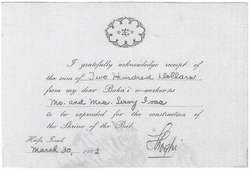 I gratefully acknowledge receipt
of the sum of Two Hundred Dollars
from my dear Bahá'í co-workers
Mr. and Mrs. Leroy Ioas
to be expended for the construction of the
Shrine of the Báb.
Haifa, Israel
March 30, 1952
Shoghi